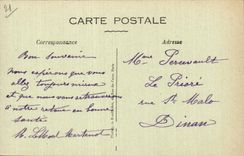 21
CARTE POSTALE
Correspondance
Adresse
Bon Souvenir
nous espérons que vous
allez toujours mieux
et que nous vous retrouverons
à notre retour en bonne
santé
Mme Perrevault
Le Prioré
rue St Malo
Dinan